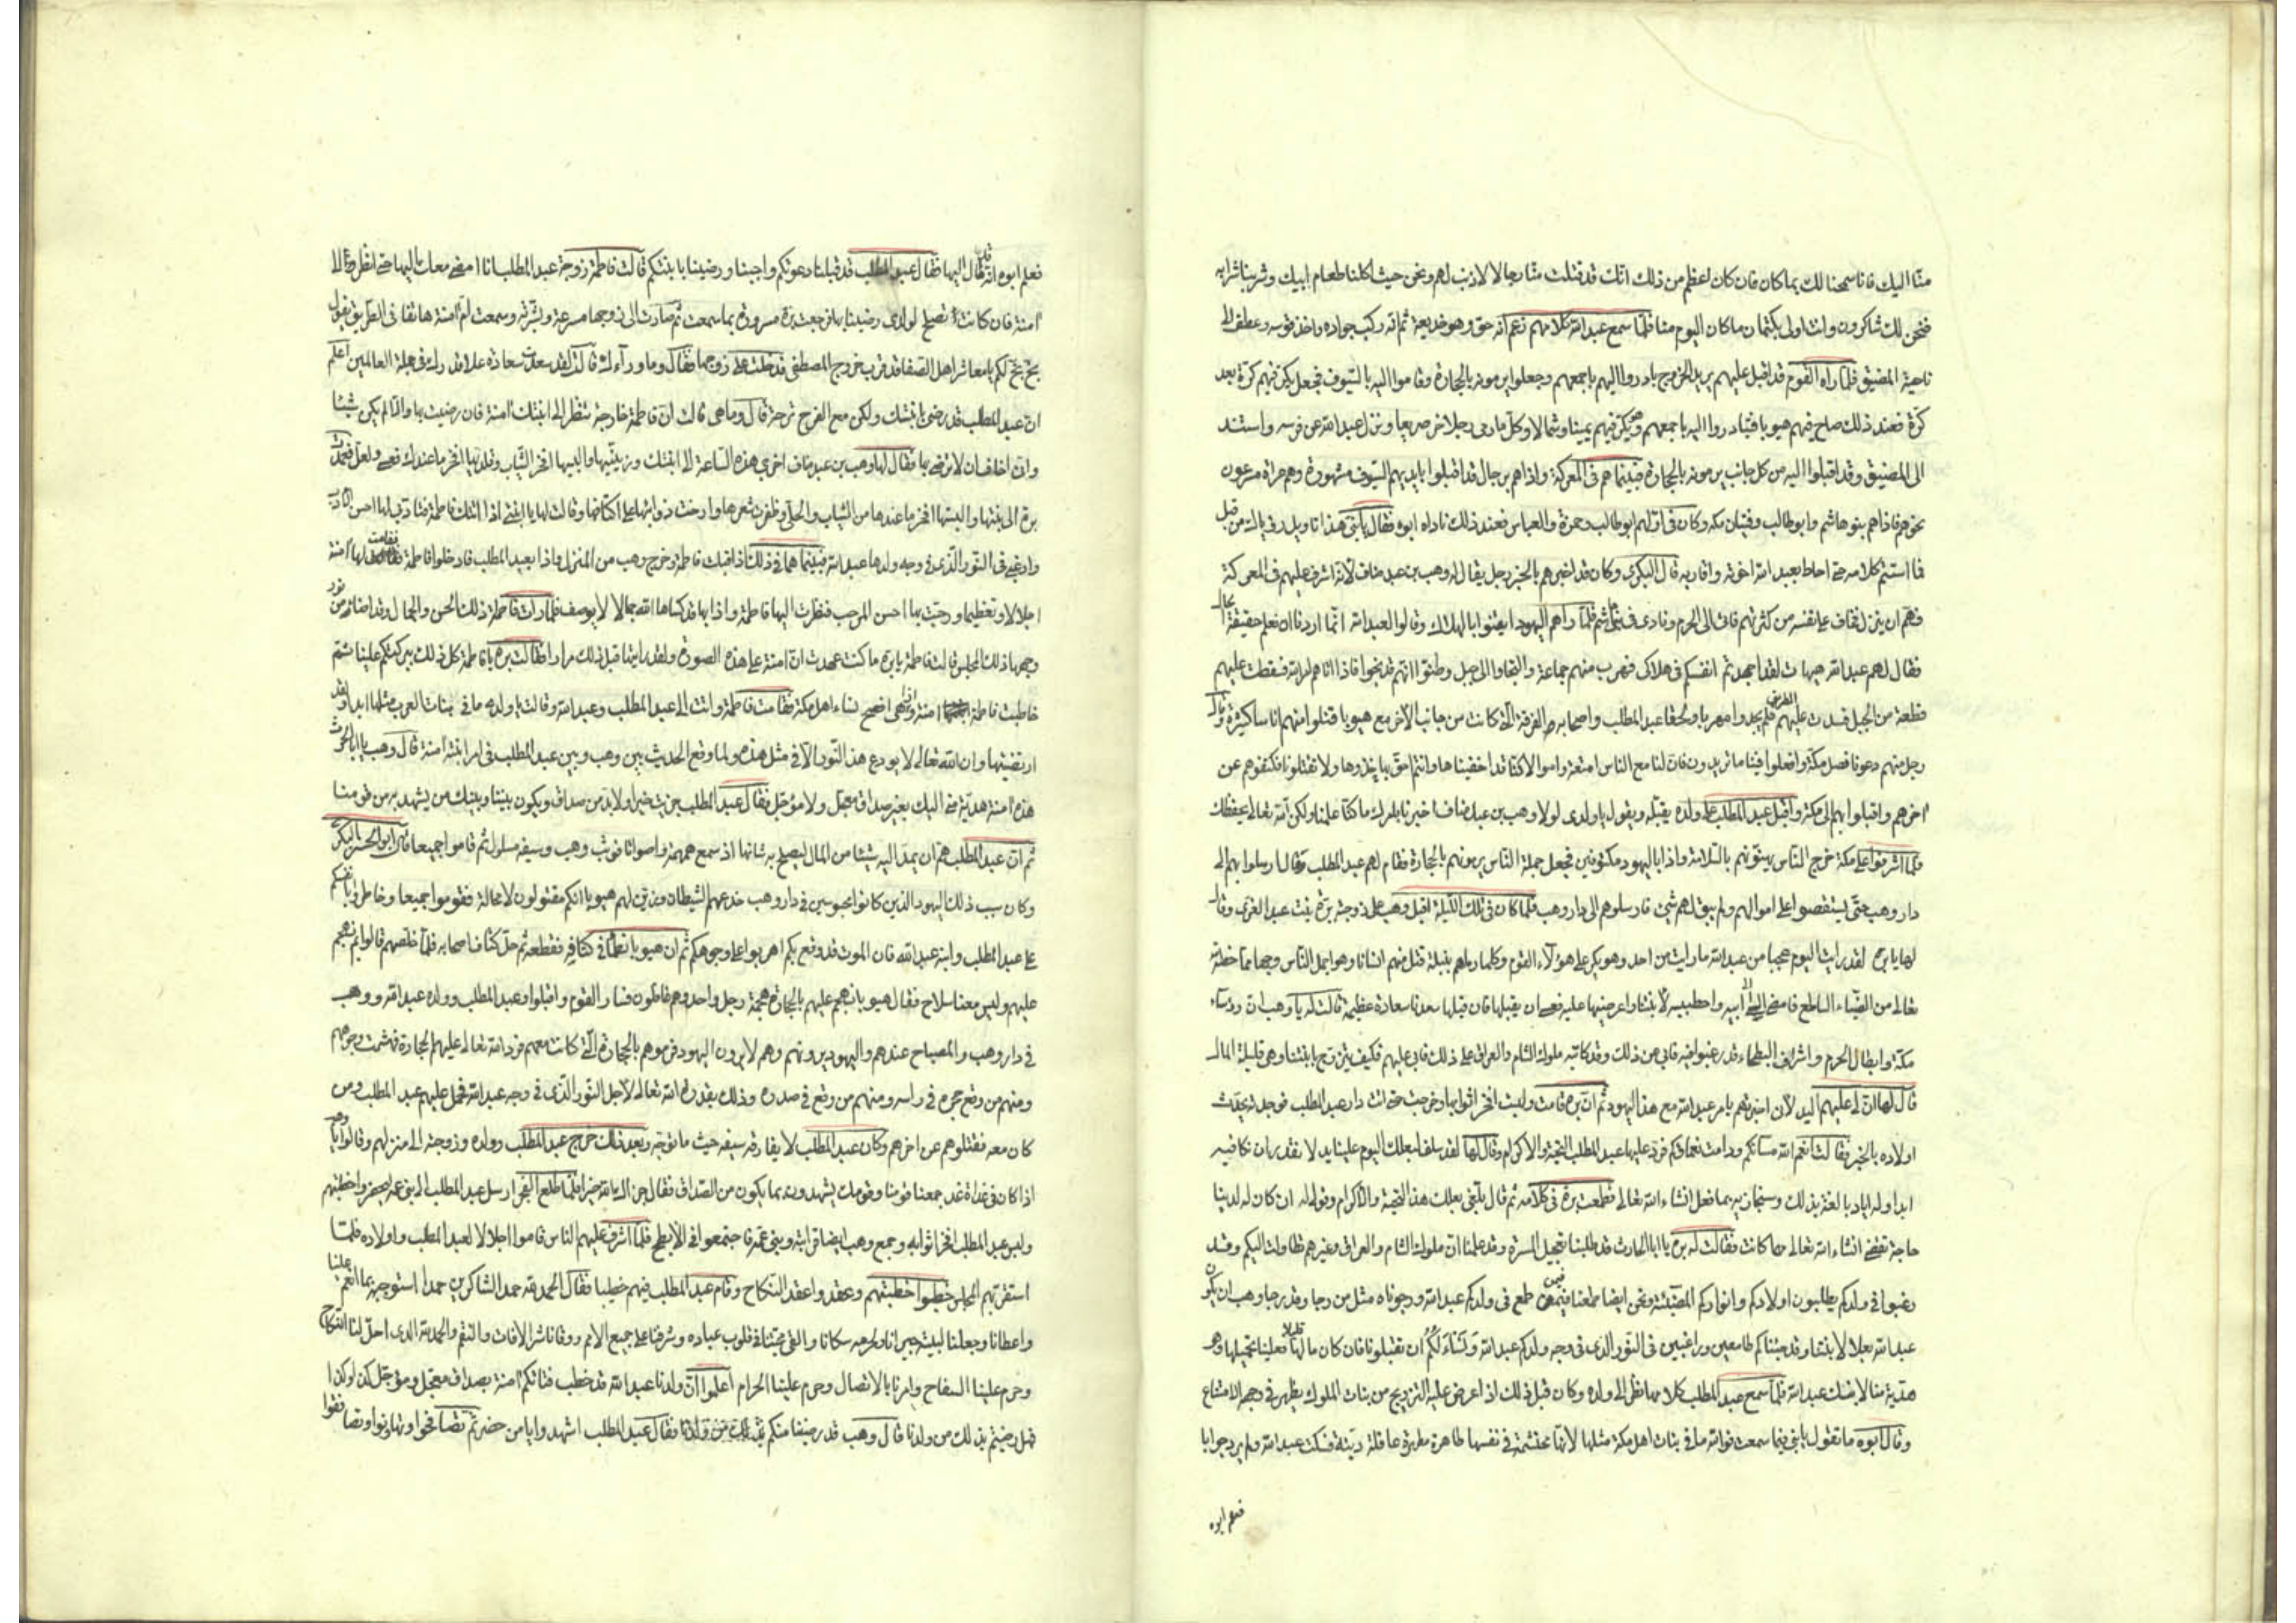 منا اليك فانا سمحنا لك بما كان فان كان اعظم من ذلك انك قد قتلت منا رجالا لا ذنب لهم ونحن حيث اكلنا طعام ابيك وشربنا شرابه
فنحن لك شاكرون وانت اولى بكتمان ما كان اليوم منا فلما سمع عبد الله كلامهم زعم انه حق وهو خديعة ثم انه ركب جواده واخذ قوسه وعطف الى
ناحية المضيق فلما رآه القوم قد اقبل عليهم يريد الخروج بادروا اليهم باجمعهم وجعلوا يرمونه بالحجارة وقاموا اليه بالسيوف فجعل يكر فيهم كرة بعد
كرة فعند ذلك صاح فيهم هيوبا فتبادروا اليه باجمعهم وهو يكر فيهم يمينا وشمالا وكل ما رمى رجلا خر صريعا ونزل عبد الله عن فرسه واستند
الى المضيق وقد اقبلوا اليه من كل جانب يرمونه بالحجارة فبينما هم في المعركة واذا هم برجال قد اقبلوا بايديهم السيوف مشهورة وهم حراة مسرعون
نحوهم فاذا هم بنو هاشم وابو طالب وفتيان مكه وكان في اولهم ابو طالب وحمزة والعباس فعند ذلك ناداه ابوه فقال يا بني هذا تاويل رؤياك من قبل
فما استتم كلامه حتى احاط بعبد الله اخوته واقاربه قال البكري وكان قد اخبرهم بالخبر رجل يقال له وهب بن عبد مناف لانه اشرف عليهم في المعركة
فهم ان ينزل فخاف على نفسه من كثرتهم فاتى الى الحرم ونادى في بني هاشم فلما رآهم اليهود ايقنوا بالهلاك وقالوا لعبد الله انما اردنا ان نعلم حقيقة الحال
فقال لهم عبد الله هيهات لقد اجهدتم انفسكم في هلاكي فهرب منهم جماعة والتجاوا الى جبل وظنوا انهم قد نجوا فاذا اتاهم امر الله فسقطت عليهم
قطعة من الجبل فسدت عليهم الطريق فلم يجدوا مهربا ولحقها عبد المطلب واصحابه والفرقة التي كانت من جانب الآخر مع هيوبا قتلوا منهم اناسا كثيرة وقال
رجل منهم دعونا نصل مكة وافعلوا فينا ما تريدون فان لنا مع الناس امتعة واموالا كنا قد اخفيناها وانتم احق بها خذوها ولا تقتلونا فكتفوهم عن
آخرهم واقبلوا بهم الى مكة واقبل عبد المطلب على ولده يقبله ويقول يا ولدي لولا وهب بن عبد مناف اخبرنا بامرك ما كنا علمنا ولكن الله تعالى يحفظك
فلما اشرفوا على مكة خرج الناس يهنونهم بالسلامة واذا باليهود مكتوفين فجعل جملة الناس يرمونهم بالحجارة فقام لهم عبد المطلب فقال ارسلوا بهم الى
دار وهب حتى يستقصوا على اموالهم ولم يبق لهم شيء فارسلوهم الى دار وهب فلما كان في تلك الليلة اقبل وهب على زوجته برة بنت عبد العزى وقال
لها يا برة لقد رايت اليوم عجبا من عبد الله ما رايت من احد وهو يكر على هؤلاء القوم وكلما رماهم بنبلة قتل منهم انسانا وهو اجمل الناس وجها مما خصه الله
تعالى من الضياء الساطع فامضي الى ابيه واخطبيه لابنتنا واعرضيها عليه فعسى ان يقبلها فان قبلها سعدنا سعادة عظيمة قالت له يا وهب ان رؤساء
مكة وابطال الحرم واشراف البطحاء قد رغبوا فيه فابى عن ذلك وقد كاتبه ملوك الشام والعراق على ذلك فابى عليهم فكيف يتزوج بابنتنا وهي قليلة المال
قال لها ان لي عليهم اليد لان اخبرتهم بامر عبد الله مع هذا اليهود ثم ان برة قامت ولبست افخر اثوابها وخرجت حتى اتت دار عبد المطلب فوجدته يحدث
اولاده بالخبر فقالت انعم الله مساءكم ودامت نعماؤكم فرد عليها عبد المطلب التحية والاكرام وقال لها لقد سلف لبعلك اليوم علينا يد لا نقدر ان نكافيه
ابدا وله اياد بالغة بذلك وسنجازيه بما فعل انشاء الله تعالى فطمعت برة في كلامه ثم قال بلغي بعلك هذا التحية والاكرام وقولي له ان كان له لدينا
حاجة تقضى انشاء الله تعالى مهما كانت فقالت له برة يا ابا الحارث قد طلبنا تعجيل المسرة وقد علمنا ان ملوك الشام والعراق وغيرهم تطاولت اليكم وقد
رغبوا في ولدكم يطالبون اولادكم وانواركم المضيئة ونحن ايضا طمعنا فيمن طمع في ولدكم عبد الله ورجوناه مثل من رجا وقد رجا وهب ان يكون
عبد الله بعلا لابنتنا وقد جئناكم طامعين وراغبين في النور الذي في وجه ولدكم عبد الله ونسألكم ان تقبلونا فان كان مالها قليلا فعلينا تجميلها وهي
هدية منا لابنك عبد الله فلما سمع عبد المطلب كلامها نظر الى ولده وكان قبل ذلك اذا عرض عليه التزويج من بنات الملوك يظهر في وجهه الامتناع
وقال ابوه ما تقول يا بني فيما سمعت فوالله ما في بنات اهل مكة مثلها لانها محتشمة في نفسها طاهرة مطهرة عاقلة دينة فسكت عبد الله ولم يرد جوابا
فعلم ابوه
فعلم ابوه انه قد مال اليها فقال عبد المطلب قد قبلنا دعوتكم واجبنا ورضينا بابنتكم قالت فاطمة زوجة عبد المطلب انا امضي معك اليها حتى انظر الى
آمنة فان كانت تصلح لولدي رضينا بها فرجعت برة مسرورة بما سمعت ثم صارت الى زوجها مسرعة وبشرته وسمعت ام آمنة هاتفا في الطريق يقول
بخ بخ لكم يا معاشر اهل الصفا قد قرب خروج المصطفى فدخلت على زوجها فقال وما وراءك قالت لقد سعدت سعادة علا قدرك في جملة العالمين اعلم
ان عبد المطلب قد رضي بابنتك ولكن مع الفرح ترحة قال وما هي قالت ان فاطمة خارجة تنظر الى ابنتك آمنة فان رضيت بها والا لم يكن شيئا
واني اخاف ان لا ترضى بها فقال لها وهب بن عبد مناف اخرجي هذه الساعة الى ابنتك وزينيها والبسيها افخر الثياب وقلديها افخر ما عندك فعسى ولعل فعمدت
برة الى بنتها والبستها افخر ما عندها من الثياب والحلي وظفرت شعرها وارخت ذوائبها على اكتافها وقالت لها يا ابنتي اذا اتتك فاطمة فتادبي لها احسن الادب
وارغبي في النور الذي في وجه ولدها عبد الله فبينما هما في ذلك اذ اقبلت فاطمة وخرج وهب من المنزل واذا بعبد المطلب فادخلوا فاطمة فقامت لها آمنة
اجلالا وتعظيما ورحبت بها احسن المرحب فنظرت اليها فاطمة واذا بها قد كساها الله جمالا لا يوصف فلما رات فاطمة ذلك الحسن والجمال وقد اضاء من نور
وجهها ذلك المجلس قالت فاطمة يا برة ما كنت عهدت ان آمنة على هذه الصورة ولقد رايتها قبل ذلك مرارا فقالت برة يا فاطمة كل ذلك ببركتكم علينا ثم
خاطبت فاطمة آمنة واذا هي افصح نساء اهل مكة فقامت فاطمة واتت الى عبد المطلب وعبد الله وقالت يا ولدي ما في بنات العرب مثلها ابدا ولقد
ارتضيتها وان الله تعالى لا يودع هذا النور الا في مثل هذه ولما وقع الحديث بين وهب وبين عبد المطلب في امر ابنته آمنة قال وهب يا ابا الحارث
هذه آمنة هدية مني اليك بغير صداق معجل ولا مؤجل فقال عبد المطلب جزيت خيرا ولا بد من صداق ويكون بيننا وبينك من يشهد به من قومنا
ثم ان عبد المطلب هم ان يمد اليه شيئا من المال ليصلح به شانها اذ سمع همهمة واصواتا فوثب وهب وسيفه مسلول ثم قاموا جميعا قال ابو الحسن البكري
وكان سبب ذلك اليهود الذين كانوا محبوسين في دار وهب خدعهم الشيطان وزين لهم هيوبا انكم مقتولون لا محالة فقوموا جميعا وخاطروا بانفسكم
على عبد المطلب وابنه عبد الله فان الموت قد وقع بكم اهربوا على وجوهكم ثم ان هيوبا تمطى في كتافه فقطعه ثم حل كتاف اصحابه فلما خلصهم قالوا بم نهجم
عليهم وليس معنا سلاح فقال هيوبا نهجم عليهم بالحجارة هجمة رجل واحد وهم غافلون فسار القوم واقبلوا وعبد المطلب وولده عبد الله ووهب
في دار وهب والمصباح عندهم واليهود يرونهم وهم لا يرون اليهود فرموهم بالحجارة التي كانت معهم فرد الله تعالى عليهم الحجارة فهشمت وجوههم
ومنهم من وقع حجره في راسه ومنهم من وقع في صدره وذلك بقدرة الله تعالى لاجل النور الذي في وجه عبد الله فحمل عليهم عبد المطلب ومن
كان معه فقتلوهم عن اخرهم وكان عبد المطلب لا يفارقه سيفه حيث ما توجه وبعد ذلك خرج عبد المطلب وولده وزوجته الى منزلهم وقالوا يا وهب
اذا كان في غداة غد جمعنا قومنا وقومك ليشهدوا بما يكون من الصداق فقال جزاك الله خيرا فلما طلع الفجر ارسل عبد المطلب الى بني عمه ليحضروا خطبتهم
ولبس عبد المطلب افخر اثوابه وجمع وهب ايضا قرابته وبني عمه فاجتمعوا في الابطح فلما اشرف عليهم الناس قاموا اجلالا لعبد المطلب واولاده فلما
استقر بهم المجلس خطبوا خطبتهم وعقدوا عقد النكاح وقام عبد المطلب فيهم خطيبا فقال الحمد لله حمد الشاكرين حمدا استوجبه بما انعم علينا
واعطانا وجعلنا لبيته جيرانا ولحرمه سكانا والقى محبتنا في قلوب عباده وشرفنا على جميع الامم ووقانا شر الآفات والنقم والحمد لله الذي احل لنا النكاح
وحرم علينا السفاح وامرنا بالاتصال وحرم علينا الحرام اعلموا ان ولدنا عبد الله قد خطب فتاتكم آمنة بصداق معجل ومؤجل كذا وكذا
فهل رضيتم بذلك من ولدنا قال وهب قد رضينا منكم فقال عبد المطلب اشهدوا يا من حضر ثم تصافحوا وتهانوا وتصافقوا